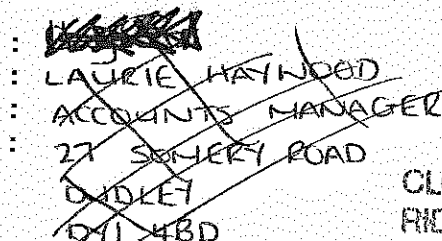 : 
: LAURIE HAYWOOD
: ACCOUNTS MANAGER
: 27 SOMERY ROAD
DUDLEY
CL
DY1 4BD
RID